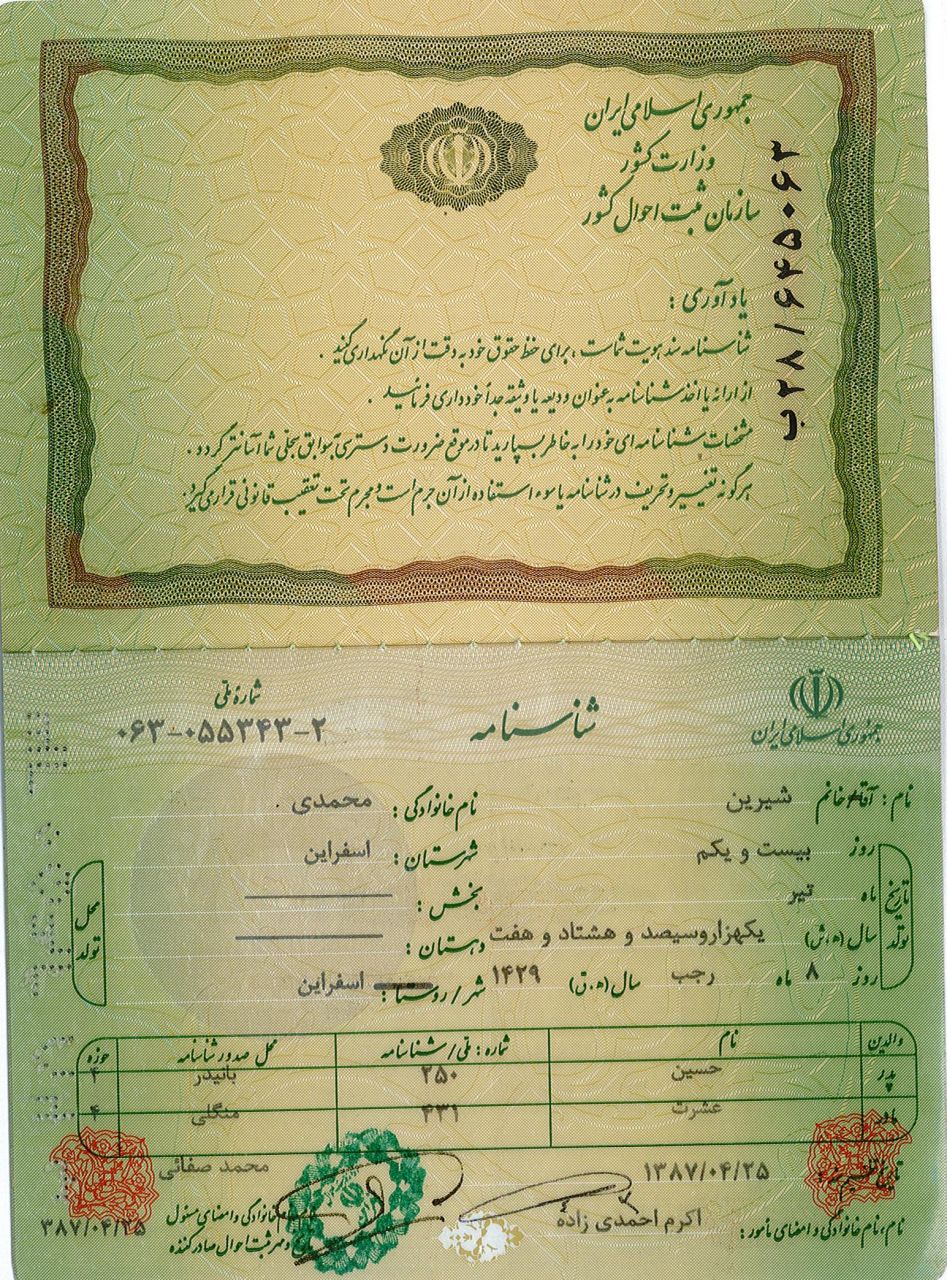 جمهوری اسلامی ایران
وزارت کشور
سازمان ثبت احوال کشور
ب۲۸/۶۴۵۰۶۳
یادآوری :
شناسنامه سند هویت شماست ، برای حفظ حقوق خود به دقت از آن نگهداری کنید .
از ارائه یا اخذ شناسنامه به عنوان ودیعه یا وثیقه جداً خودداری فرمائید .
مشخصات شناسنامه ای خود را به خاطر بسپارید تا در موقع ضرورت دسترسی به سوابق سجلی شما آسانتر گردد .
هرگونه تغییر و تحریف در شناسنامه یا سوء استفاده از آن جرم است و مجرم تحت تعقیب قانونی قرار می گیرد.
جمهوری اسلامی ایران
شناسنامه
شماره ملی
۰۶۳-۰۵۵۳۴۳-۲
نام : آقا/خانم شیرین نام خانوادگی : محمدی
تاریخ تولد
روز بیست و یکم
ماه تیر
سال (ه.ش) یکهزاروسیصد و هشتاد و هفت
روز ۸ ماه رجب سال (ه.ق) ۱۴۲۹
محل تولد
شهرستان : اسفراین
بخش :
دهستان :
شهر / روستا : اسفراین
والدین نام شماره : ملی / شناسنامه محل صدور شناسنامه حوزه
پدر حسین ۲۵۰ بانیدر ۴
مادر عشرت ۴۳۱ منگلی ۴
۱۳۸۷/۰۴/۲۵
محمد صفائی
نام ، نام خانوادگی و امضای مأمور : اکرم احمدی زاده
خانوادگی و امضای مسئول
و مهر ثبت احوال صادرکننده
۳۸۷/۰۴/۲۵